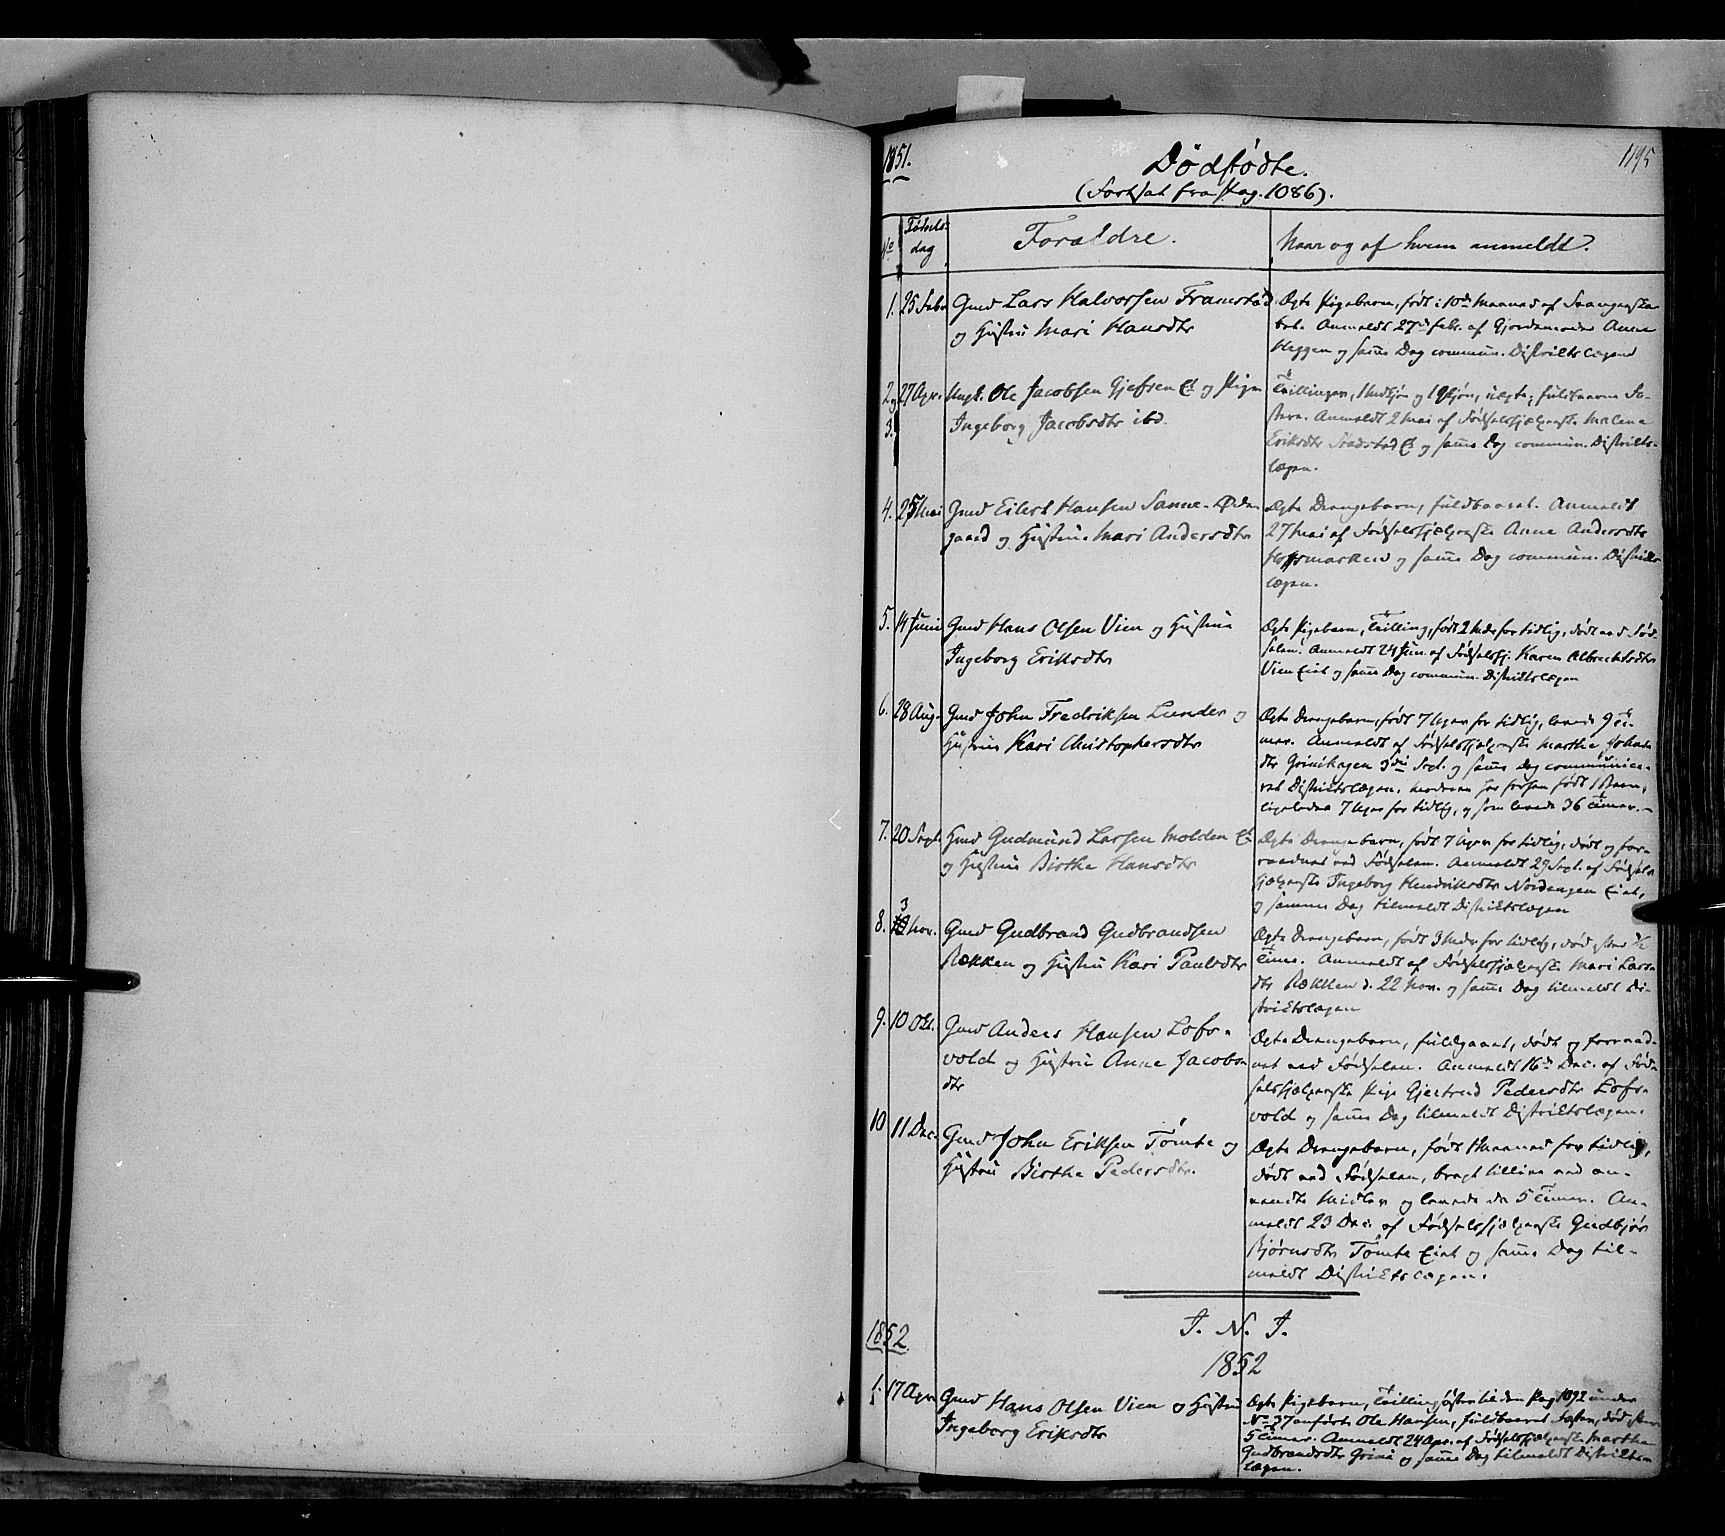 1851.
Dödfödte.
1195
(Fortsat fra Pag. 1086).
No
Fødsels-
dag
Forældre.
Naar og af hvem anmeldt.
1. 25 Febr Gmd Lars Halvorsen Framstad
og Hustru Mari Hansdtr
Ægte Pigebarn, født i 10de Maaned af Svangerska-
bet. Anmeldt 27de Febr. af Gjordemoder Anne
Heggen og samme Dag commun. Districtslægen
2 og 3. 27 Apr. Ungk. Ole Jacobsen Gjefsen E. og Pige
Ingeborg Jacobsdtr ibd.
Tvillinger, 1 Mdkjøn og 1 Qkjøn, uægte, fuldbaarne Fo-
stere. Anmeldt 2 Mai af Fødselshjælperske Malene
Eriksdtr E. og samme Dag commun. Districts-
lægen.
4. 25 Mai Gmd Eilert Hansen Sanne-Øde-
gaard og Hustru Mari Andersdtr
Ægte Drengebarn, fuldbaaret. Anmeldt
27 Mai af Fødselshjælperske Anne Andersdtr
og samme Dag commun. Districts
lægen.
5. 14 Juni Gmd Hans Olsen Vien og Hustru
Ingeborg Eriksdtr
Ægte Pigebarn, Tvilling, født 2 Mdr for tidlig, dødt ved Fød-
selen. Anmeldt 24 Jun. af Fødselshj. Karen Albrechtsdtr
Vien Eiet og samme Dag commun. Districtslægen
6. 28 Aug. Gmd John Fredriksen Lunder og
Hustru Kari Christophersdtr
Ægte Drengebarn, født 7 Uger for tidlig, levede 9 Ti-
mer. Anmeldt af Fødselshjælperske Marthe Johans
dtr Grinihagen 3die Sept. og samme Dag communice-
ret Districtslægen. Moderen har forhen født 1 Barn,
ligeledes 7 Uger for tidlig, og som levede 36 Timer.
7. 20 Sept. Hmd Gudmund Larsen Molden E.
og Hustru Birthe Hansdtr
Ægte Drengebarn, født 7 Uger for tidlig, dødt og for-
raadnet ved Fødselen. Anmeldt 29 Sept. af Fødsels
hjælperske Ingeborg Hendriksdtr Nordengen Eiet,
og samme Dag tilmeldt Districtslægen
8. 3 Nov. Gmd Gudbrand Gudbrandsen
Rækken og Hustru Kari Paulsdtr
Ægte Drengebarn, født 3 Mdr for tidlig, død efter ½
Time. Anmeldt af Fødselshjælperske Mari Lars-
dtr Rækken d. 22 Nov. og samme Dag tilmeldt Di-
strictslægen
9. 10 Oct. Gmd Anders Hansen Lofs-
vold og Hustru Anne Jacobs-
dtr
Ægte Drengebarn, fuldgaaet, dødt og forraad-
net ved Fødselen. Anmeldt 16de Dec. af Fød-
selshjælperske Pige Gjertrud Pedersdtr Lofs-
vold og samme Dag tilmeldt Districtslægen.
10 11 Dec. Gmd John Eriksen Tömte og
Hustru Birthe Pedersdtr.
Ægte Drengebarn, født 1 Maaned for tidlig,
dødt ved Fødselen, bragt tillive ved an-
vendte Midler og levede da 5 Timer. An-
meldt 23 Dec. af Fødselshjælperske Gudbjør
Bjørnsdtr Tömte Eiet og samme Dag til-
meldt Districtslægen.
1852
I. N. J.
1852
1. 17 Apr Gmd Hans Olsen Vien og Hustru
Ingeborg Eriksdtr
Ægte Pigebarn, Tvillingsøster til den Pag 1092 under
No 37 anførte Ole Hansen, fuldbaaret Foster, død efter
5 Timer. Anmeldt 24 Apr. af Fødselshjælperske Marthe
Gudbrandsdtr Grini og samme Dag tilmeldt Districts-
lægen.